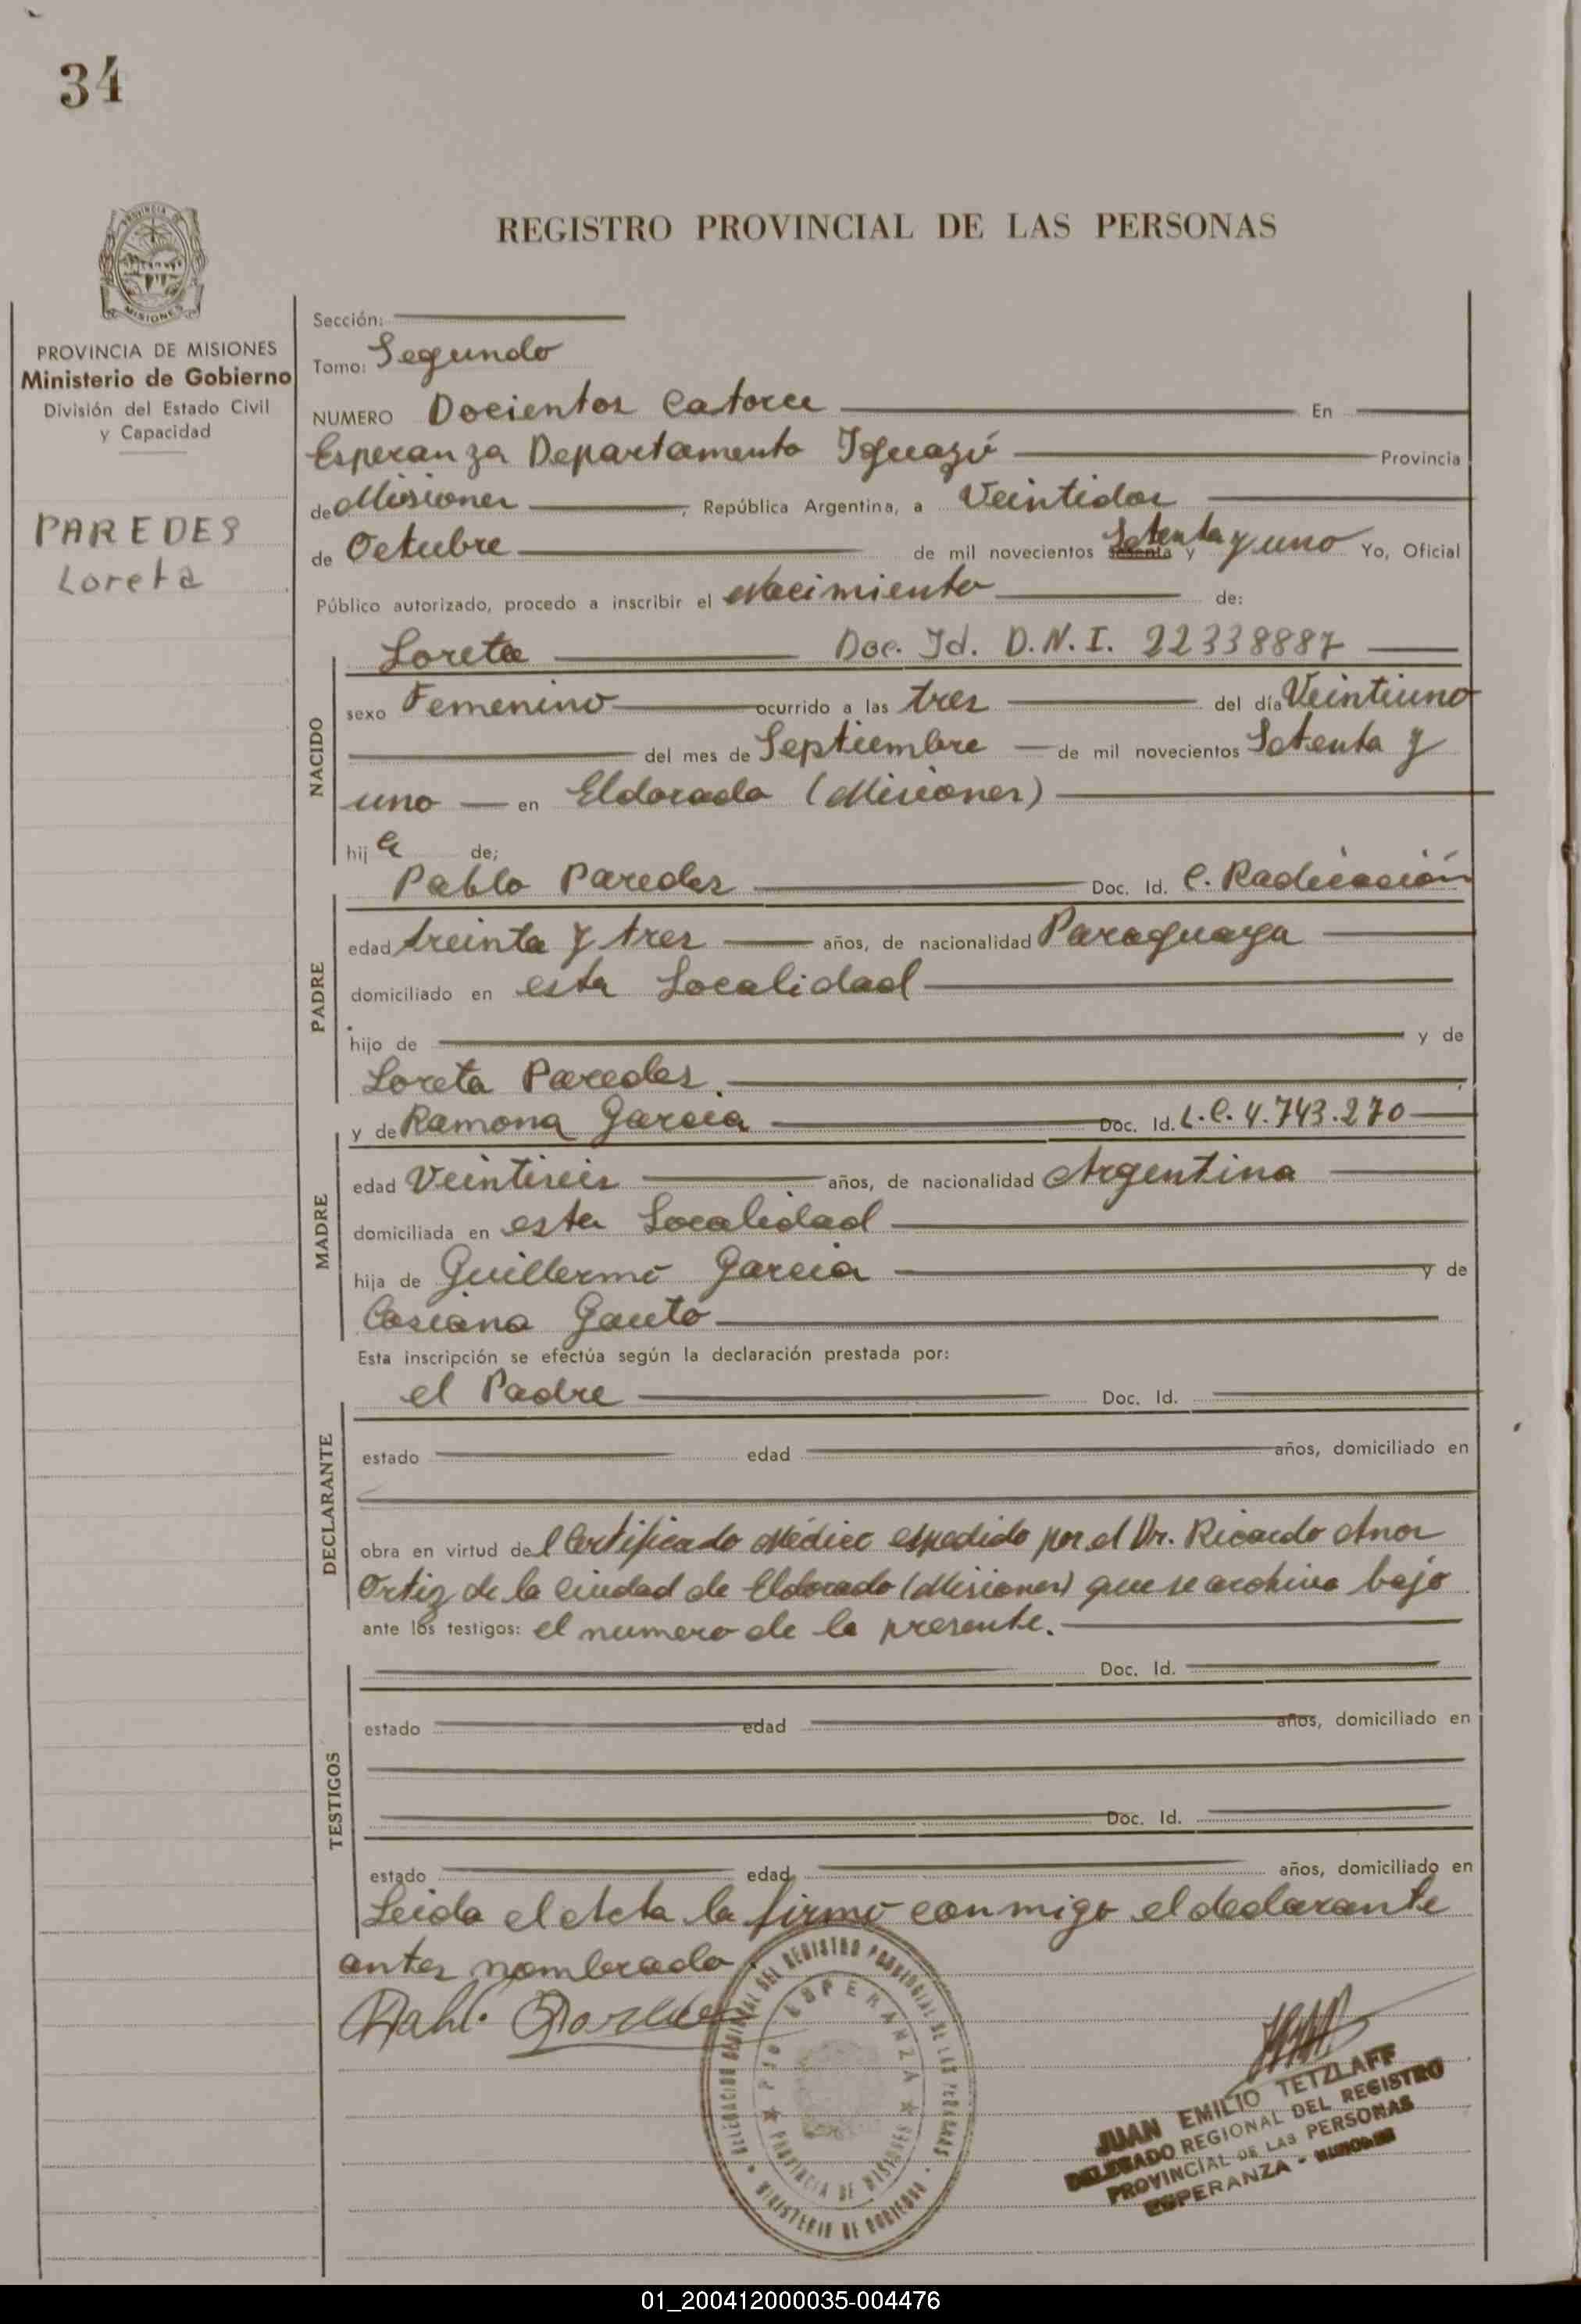 34
REGISTRO PROVINCIAL DE LAS PERSONAS
PROVINCIA DE
MISIONES
PROVINCIA DE MISIONES
Ministerio de Gobierno
División del Estado Civil
y Capacidad
PAREDES
Loreta
Sección:
Tomo: Segundo
NUMERO Docientos Catorce En
Esperanza Departamento Iguazú Provincia
de Misiones, República Argentina, a Veintidos
de Octubre de mil novecientos sesenta y Setenta y uno Yo, Oficial
Público autorizado, procedo a inscribir el Nacimiento de:
Loreta Doc. Id. D.N.I. 22338887
NACIDO
sexo Femenino ocurrido a las tres del día Veintiuno
del mes de Septiembre de mil novecientos Setenta y
uno en Eldorado (Misiones)
hija de;
Pablo Paredes Doc. Id. C. Radicación
PADRE
edad treinta y tres años, de nacionalidad Paraguaya
domiciliado en esta Localidad
hijo de y de
Loreta Paredes.
y de Ramona Garcia Doc. Id. L.C. 4.743.270
MADRE
edad Veintiseis años, de nacionalidad Argentina
domiciliada en esta Localidad
hija de Guillermo Garcia y de
Casiana Gauto
Esta inscripción se efectúa según la declaración prestada por:
el Padre Doc. Id.
DECLARANTE
estado edad años, domiciliado en
obra en virtud del Certificado Médico expedido por el Dr. Ricardo
Ortiz de la Ciudad de Eldorado (Misiones) que se archiva bajo
ante los testigos: el numero de la presente.
Doc. Id.
TESTIGOS
estado edad años, domiciliado en
Doc. Id.
estado edad años, domiciliado en
Leida el Acta la firmó conmigo el declarante
antes nombrado
DELEGACION REGIONAL DEL REGISTRO PROVINCIAL DE LAS PERSONAS
ESPERANZA
PROVINCIA DE MISIONES
MINISTERIO DE GOBIERNO
JUAN EMILIO TETZLAFF
DELEGADO REGIONAL DEL REGISTRO
PROVINCIAL DE LAS PERSONAS
ESPERANZA - MISIONES
01_200412000035-004476